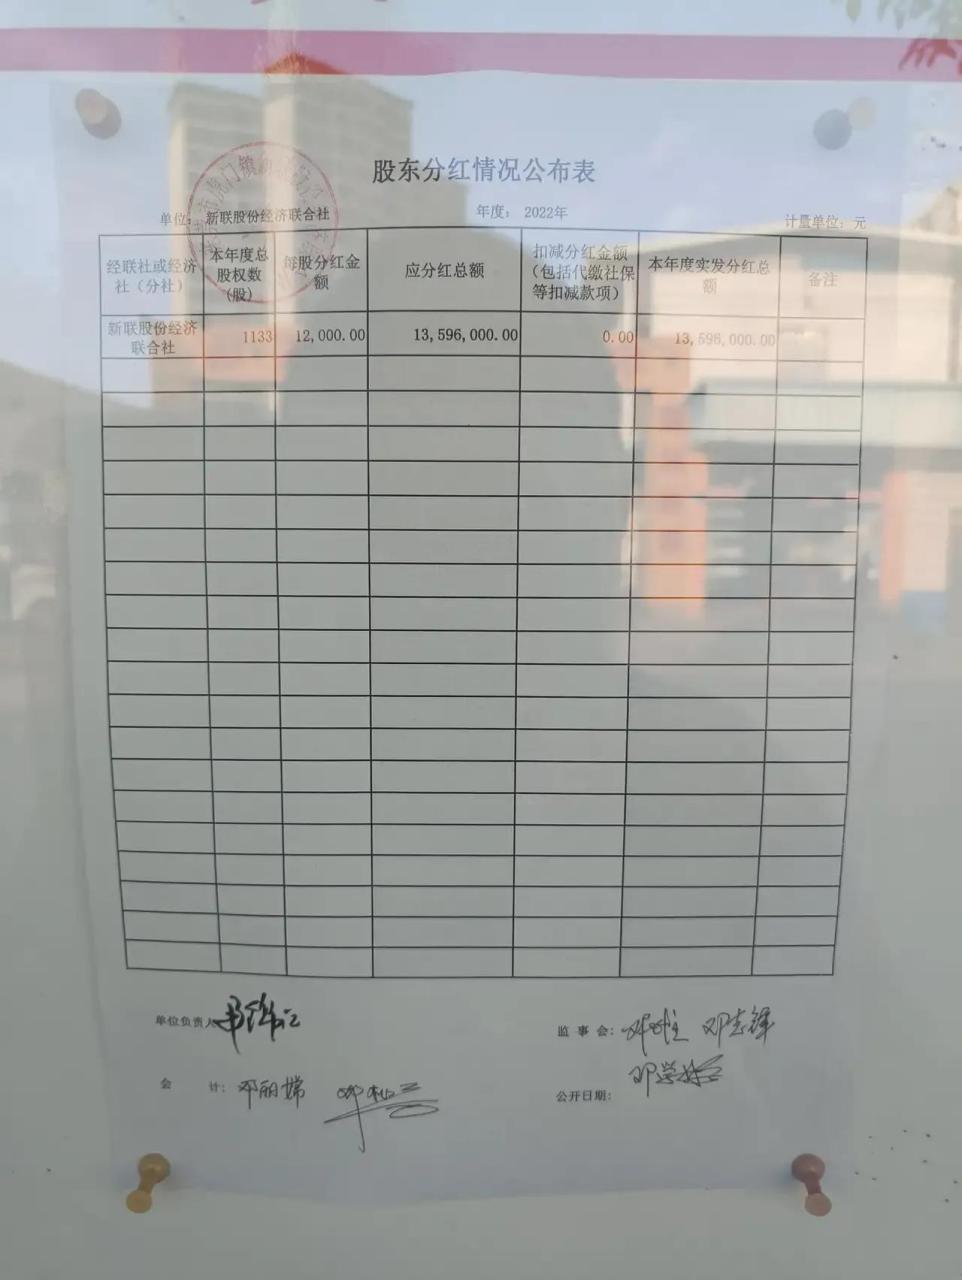 股东分红情况公布表
单位： 新联股份经济联合社 年度： 2022年 计量单位：元
经联社或经济社（分社） 本年度总股权数（股） 每股分红金额 应分红总额 扣减分红金额（包括代缴社保等扣减款项） 本年度实发分红总额 备注
新联股份经济联合社 1133 12,000.00 13,596,000.00 0.00 13,596,000.00
单位负责人
监事会： 邓志锋
会 计： 邓丽嫦
公开日期：